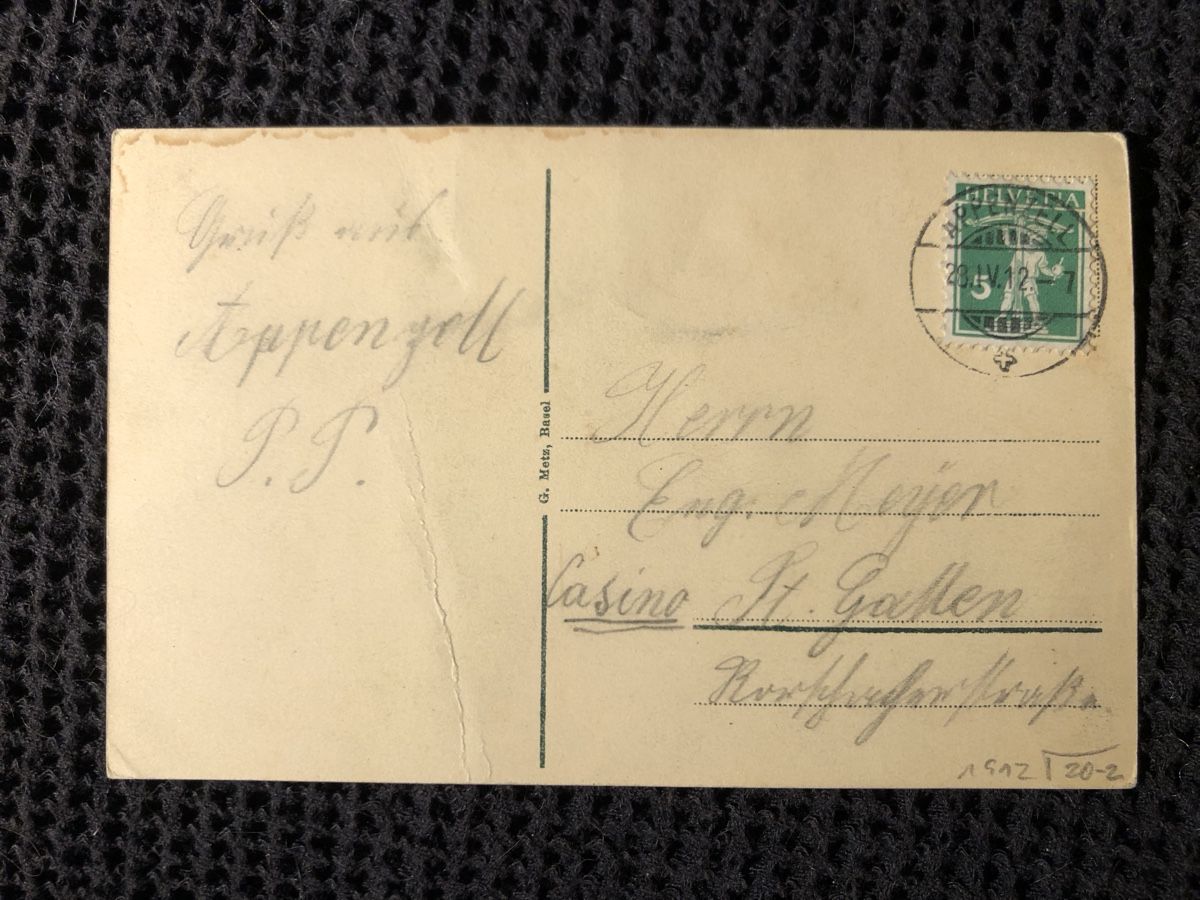 Gruß aus
Appenzell
P.P.
G. Metz, Basel
HELVETIA
5
APPENZELL
28.IV.12.–7
Herrn
Eug. Meyer
Casino St. Gallen
Rorschacherstraße.
1912 20-2